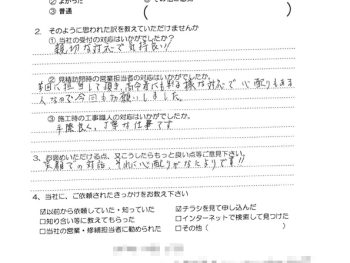 ② よかった
③ 普通 (
2. そのように思われた訳を教えていただけませんか
① 当社の受付の対応はいかがでしたか?
親切な対応で気持良い!!
② 見積訪問時の営業担当者の対応はいかがでしたか。
前回に担当して頂き、高令者にも判る様な対応で心配りもある
人なので今回もお願いしました。
③ 施工時の工事職人の対応はいかがでしたか?
手際良く、丁寧な仕事です
3、お褒めいただける点、又こうしたらもっと良い点等ご意見下さい。
笑顔での対話、それに心配りがなによりです!!
4、当社に、ご依頼されたきっかけをお教え下さい
☑以前から依頼していた・知っていた ☑チラシを見て申し込んだ
□知り合い等に教えてもらった □インターネットで検索して見つけた
□当社の営業・修繕担当者に勧められた □その他(